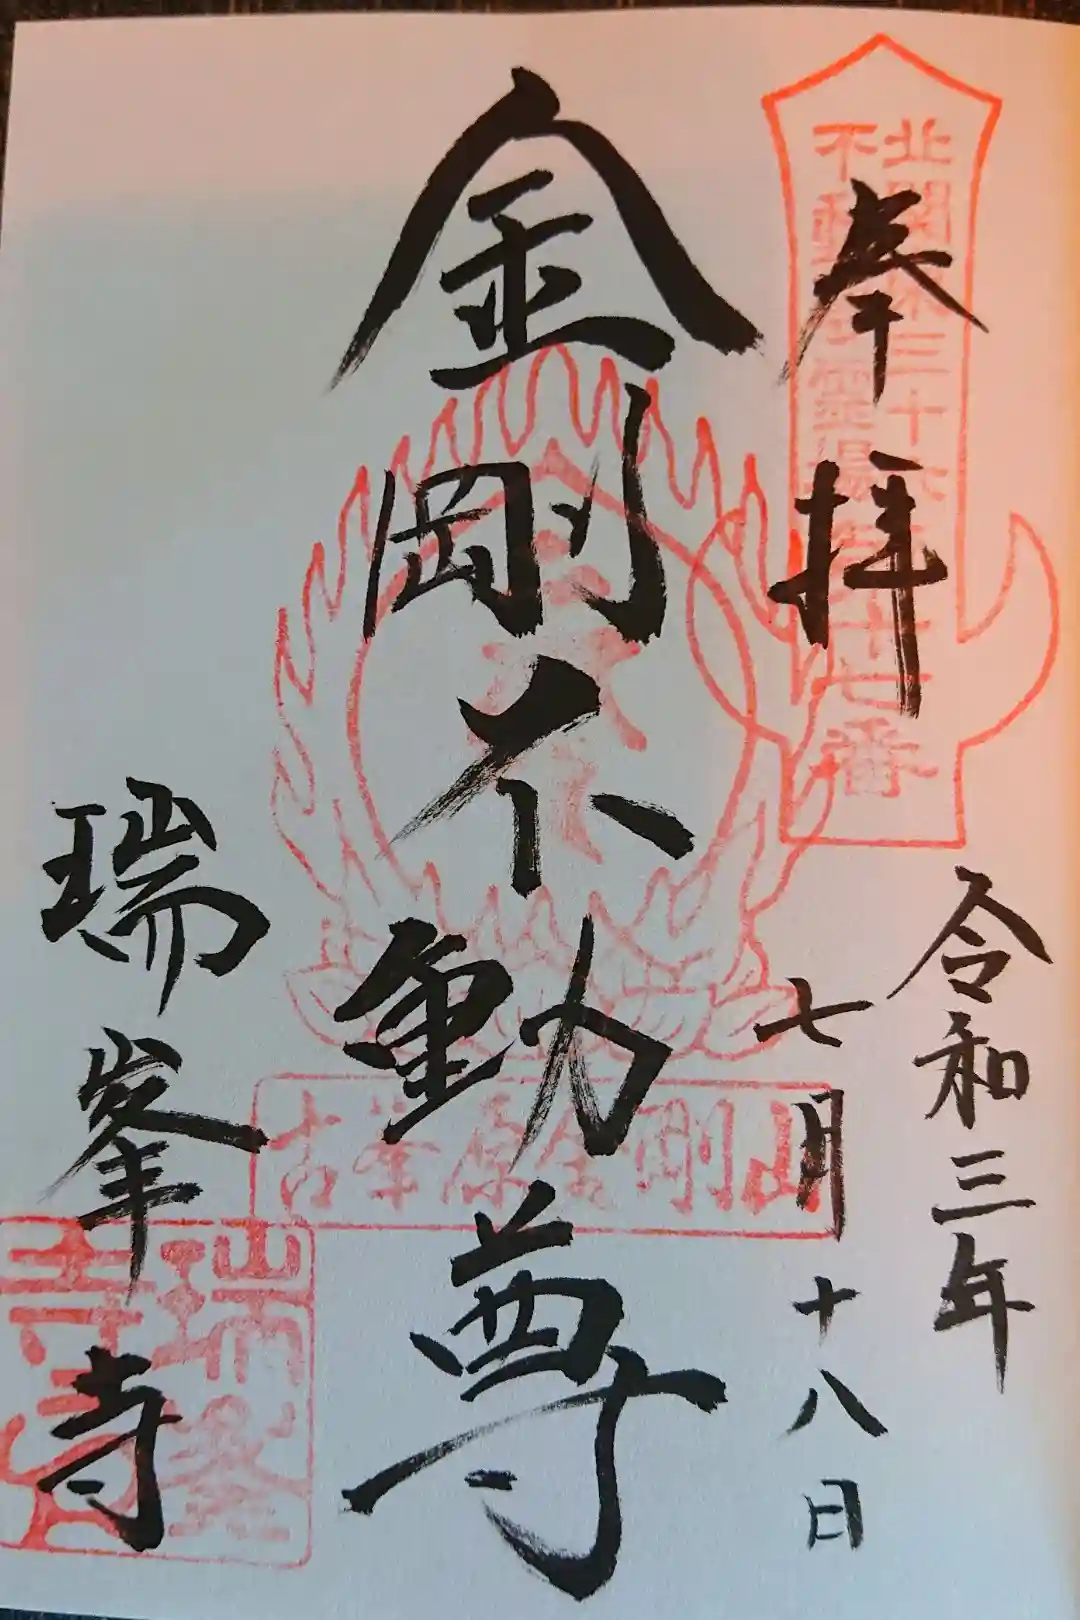 奉拝
令和三年
七月十八日
金剛不動尊
瑞峯寺
北関東三十六
不動尊霊場第
十七番
古峯原金剛山
瑞峯
寺